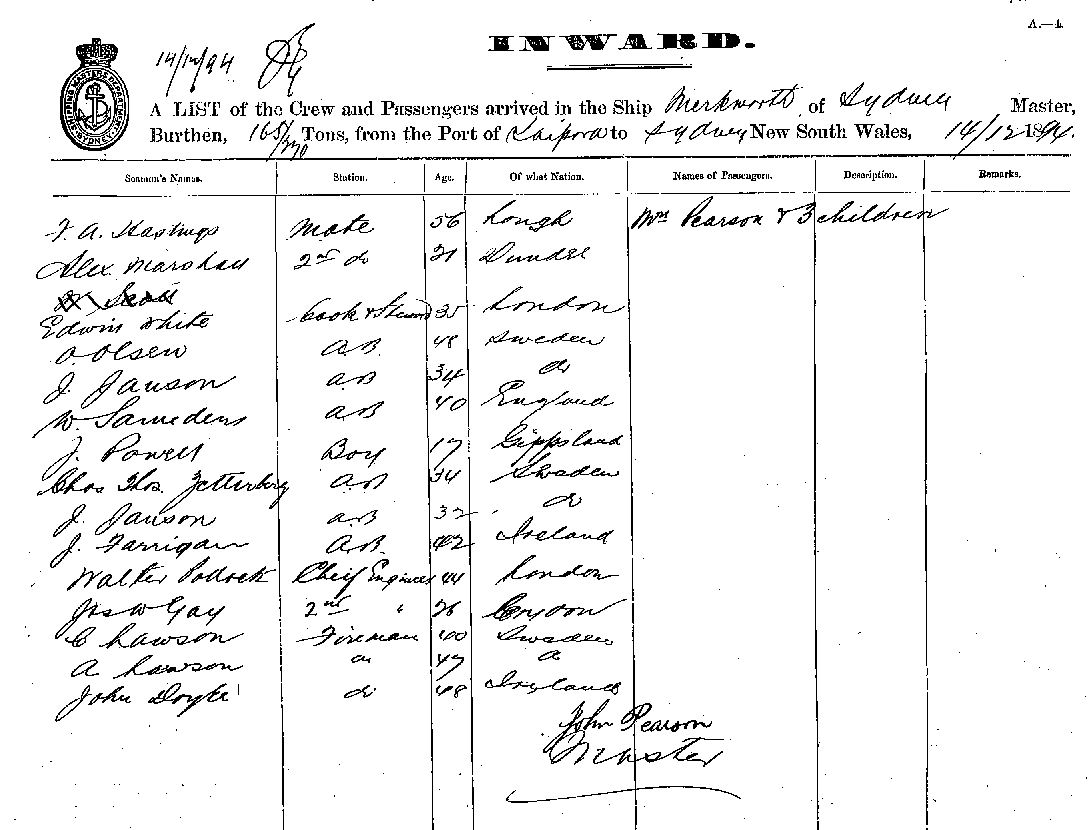 A.—4.
INWARD.
14/12/94
SHIPPING MASTERS DEPARTMENT SYDNEY
A LIST of the Crew and Passengers arrived in the Ship Merkworth of Sydney Master,
Burthen, 165/270 Tons, from the Port of Kaipara to Sydney New South Wales, 14/12 1894.
Seaman's Names. Station. Age. Of what Nation. Names of Passengers. Description. Remarks.
F. A. Hastings Mate 56 Lough Mrs Pearson & 3 children
Alex Marshall 2nd do 21 Dundee
Scott
Edwin White Cook & Steward 35 London
O Olsen AB. 48 Sweden
J. Janson AB 34 do
W. Saunders AB 40 England
J. Powell Boy 17 Gippsland
Chas Thos. Zetterberg AB 34 Sweden
J. Janson AB 32 do
J. Farrigan A.B. 42 Ireland
Walter Chief Engineer 44 London
Jas W Gay 2nd " 26 Croydon
C Lawson Fireman 40 Sweden
A Lawson do 47 do
John Doyle do 48 Ireland
John Pearson
Master